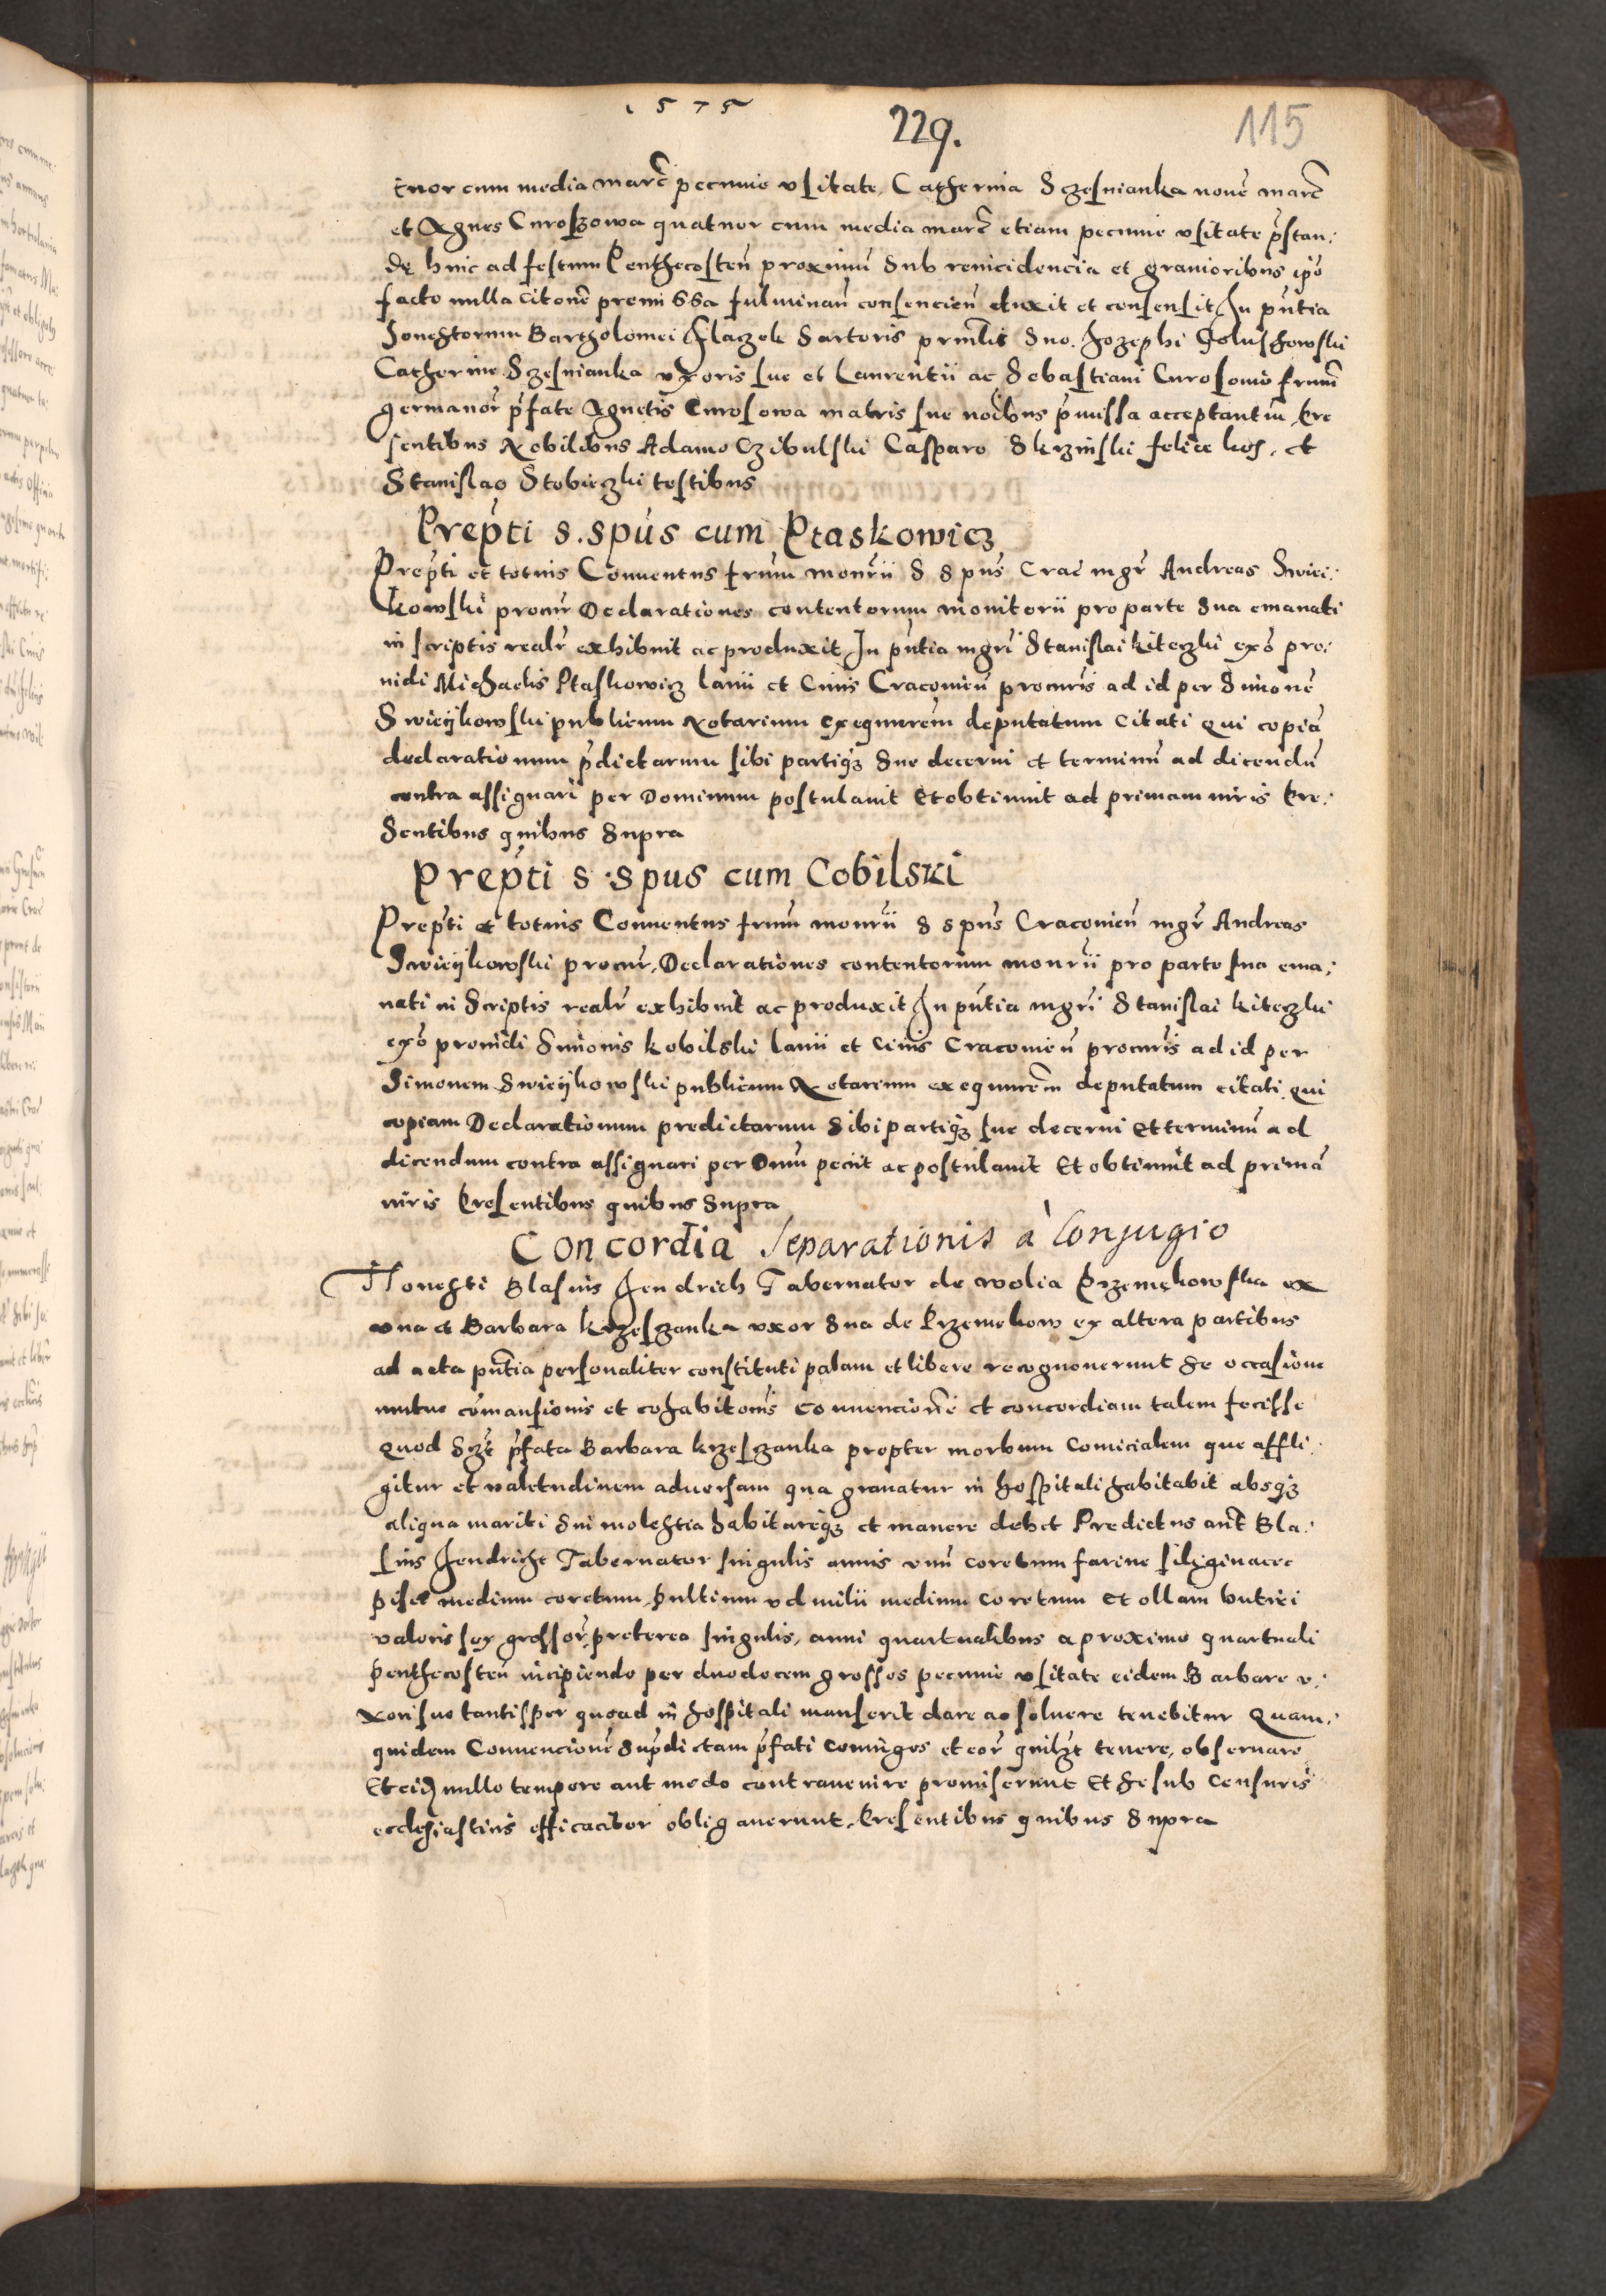 1575
229.
115
tuor cum media marc̃ pecunie usitate, Catherina Sczesnianka novẽ marc̃
et Agnes Curoszowa quatuor cum media marc̃ etiam pecunie usitate p̃stan:
de hinc ad festum Penthecosteñ proximũ Sub renicidencia et gravioribus ip̃o
facto nulla citonẽ premissa fulminañ consencieñ duxit et consensit In pñtia
honestorum Bartholomei Sartoris Suo. Jozephi
Catherine Sczesnianka uxoris sue et Laurentii ac Sebastiani frum̃
germanor̃ p̃fate Agnetis Curosowa matris sue p̃missa acceptantiũ Pre
sentibus Nobilibus Adamo Czibulski Casparo Skrzinski felice kos, et
Stanislao Stobieczki testibus
Prep̃ti S. Spũs cum Ptaskowicz
Prep̃ti et totius Conventus frum monr̃ii S Spũs Crac̃ mgr̃ Andreas Swiei:
kowski procur̃ Declarationes contentorum monitorii pro parte Sua emanati
in scriptis realr̃ exhibuit ac produxit In pñtia mgr̃i Stanislai kiteczki ex̃o pro:
vidi Michaelis Ptaskowicz lanii et Civis Cracovieñ procur̃is ad id per Simonẽ
Swieÿkowski publicum Notarium exequurem̃ deputatum Citati Qui copiã
declarationum p̃dictarum sibi partiq3 Sue decerni et terminũ ad dicendũ
contra assignari per Dominum postulavit Et obtinuit ad primam iuris Pre:
Sentibus quibus Supra
Prep̃ti S. Spus cum Cobilski
Prep̃ti et totius Conventus frum̃ monr̃ii S Spũs Cracovieñ mgr̃ Andreas
Swieÿkowski procur̃, Declarationes contentorum monr̃ii pro parte sua ema:
nati in Scriptis realr̃ exhibuit ac produxit In pñtia mgr̃i Stanislai kiteczki
ex̃o providi Simonis kobilski lanii et Civis Cracovieñ procur̃is ad id per
Simonem Swieÿkowski publicum Notarium exequurem̃ deputatum citati Qui
copiam Declarationum predictarum Sibi partiq3 sue decerni Et terminũ ad
dicendum contra assignari per Dnũm peciit ac postulavit Et obtinuit ad primã
iuris Presentibus quibus Supra
Concordia Separationis à Conjugio
Honesti Blasius Jendrich Tabernator de wolia Przemękowska ex
una et Barbara krzesczanka uxor Sua de Przemekow ex altera partibus
ad acta pñtia personaliter constituti palam et libere recognoverunt se occasione
mutue cõmansionis et cohabitonis convencionẽ et concordiam talem fecisse
quod Sczt p̃fata Barbara krzesczanka propter morbum Comicialem que affli:
gitur et valetudinem adversam qua gravatur in hospitali habitabit absq3
aliqua mariti Sui molestia habitareq3 et manere debet Predictus aut̃ Bla:
sius Jendricht Tabernator singulis annis unũ coretum farine siliginacee
pise medium coretum, pultium vel milii medium coretum Et ollam butiri
valoris sex grossor̃, preterea singulis, anni quartualibus a proximo quartuali
penthecosteñ incipiendo per duodecem grossos pecunie usitate eidem Barbare u:
xori sue tantisper quoad in hospitali manserit dare ac solvere tenebitur Quam:
quidem Convencionẽ Sup̃dictam p̃fati coniuges et eor̃ quilzt tenere, observare
Et eid3 nullo tempore aut modo contravenire promiserunt Et se sub Censuris
ecclesiasticis efficaciter obligaverunt, Presentibus quibus Supra